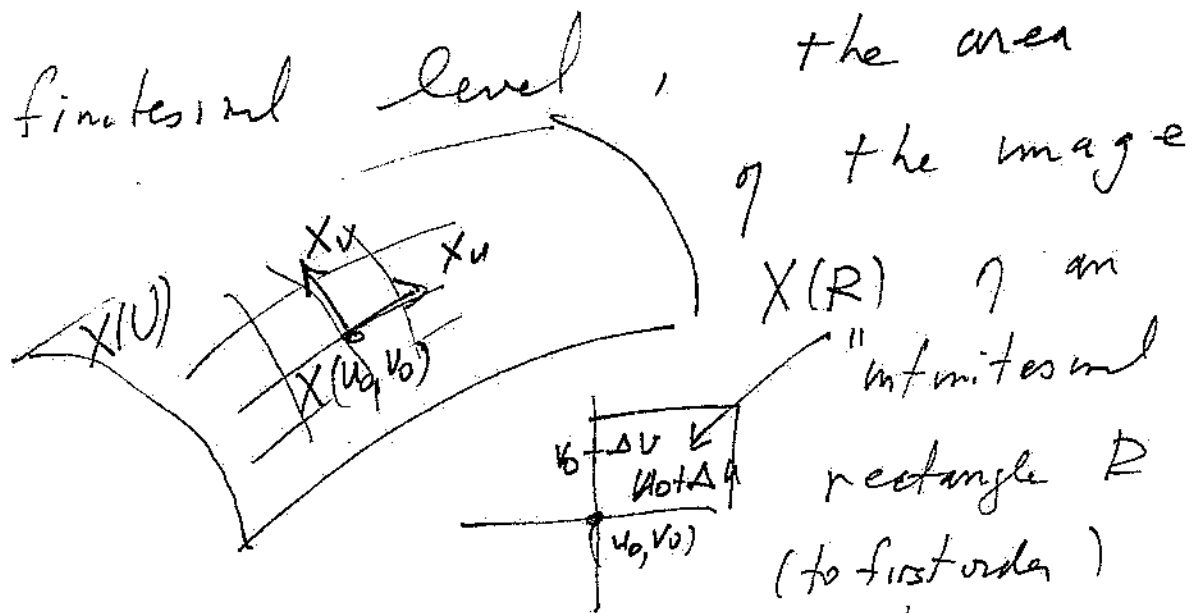 finitesimal level, the area
of the image
X(R) of an
"infinitesimal
rectangle R
(to first order)
X_v
X_u
X(U)
X(u_0, v_0)
v_0+Δv
u_0+Δu
(u_0, v_0)